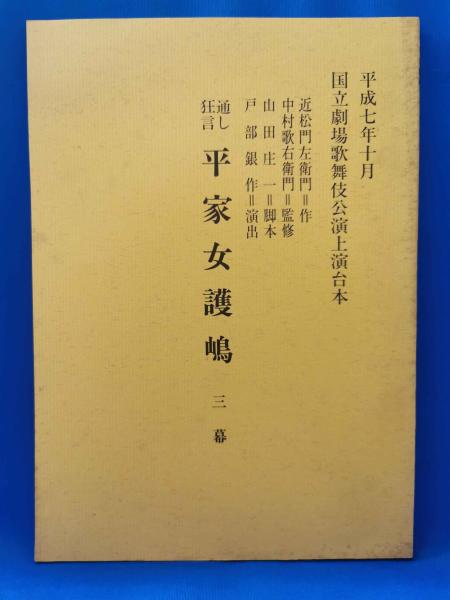 平成七年十月
国立劇場歌舞伎公演上演台本
近松門左衛門＝作
中村歌右衛門＝監修
山田庄一＝脚本
戸部銀作＝演出
通し
狂言
平家女護嶋 三幕